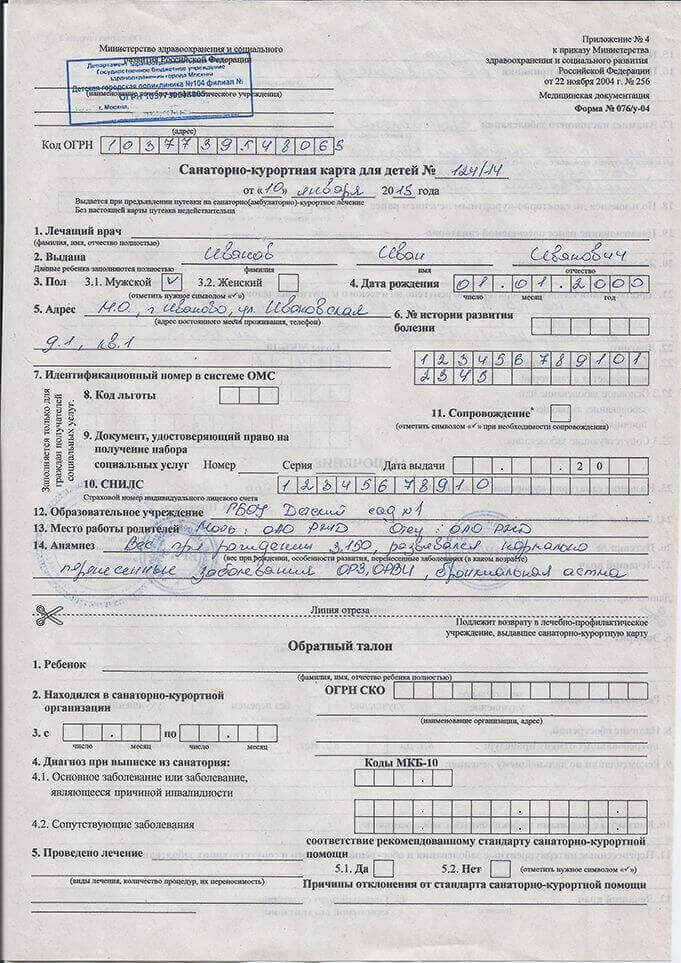 Министерство здравоохранения и социального
развития Российской Федерации
Приложение № 4
к приказу Министерства
здравоохранения и социального развития
Российской Федерации
от 22 ноября 2004 г. № 256
Медицинская документация
Форма № 076/у-04
Государственное бюджетное учреждение
здравоохранения города Москвы
Детская городская поликлиника №104 филиал №
г. Москва,
(адрес)
Код ОГРН 1037739548065
Санаторно-курортная карта для детей № 124/14
от «10» января 2015 года
Выдается при предъявлении путевки на санаторно(амбулаторно)-курортное лечение
Без настоящей карты путевка недействительна
1. Лечащий врач
(фамилия, имя, отчество полностью)
2. Выдана Иванов Иван Иванович
Данные ребенка заполняются полностью фамилия имя отчество
3. Пол 3.1. Мужской ✓ 3.2. Женский 4. Дата рождения 01.01.2000
(отметить нужное символом «✓») число месяц год
5. Адрес М.О., г. Иваново, ул. Ивановская
(адрес постоянного места проживания, телефон)
д.1, кв.1
6. № истории развития
болезни
7. Идентификационный номер в системе ОМС 1234567891012345
Заполняется только для
граждан получателей
социальных услуг.
8. Код льготы
11. Сопровождение*
(отметить символом «✓» при необходимости сопровождения)
9. Документ, удостоверяющий право на
получение набора
социальных услуг Номер Серия Дата выдачи . . 20
10. СНИЛС 12345678910
Страховой номер индивидуального лицевого счета
12. Образовательное учреждение ГБОУ Детский сад №1
13. Место работы родителей Мать: ОАО РЖД Отец: ОАО РЖД
14. Анамнез Вес при рождении 3,150, развивался нормально
(вес при рождении, особенности развития, перенесенные заболевания (в каком возрасте)
перенесенные заболевания ОРЗ, ОРВИ, бронхиальная астма
Линия отреза
Подлежит возврату в лечебно-профилактическое
учреждение, выдавшее санаторно-курортную карту
Обратный талон
1. Ребенок
(фамилия, имя, отчество ребенка полностью)
2. Находился в санаторно-курортной
организации
ОГРН СКО
(наименование организации, адрес)
3. с . по .
число месяц число месяц
4. Диагноз при выписке из санатория: Коды МКБ-10
4.1. Основное заболевание или заболевание,
являющееся причиной инвалидности
4.2. Сопутствующие заболевания
5. Проведено лечение
(виды лечения, количество процедур, их переносимость)
соответствие рекомендованному стандарту санаторно-курортной
помощи
5.1. Да 5.2. Нет (отметить нужное символом «✓»)
Причины отклонения от стандарта санаторно-курортной помощи